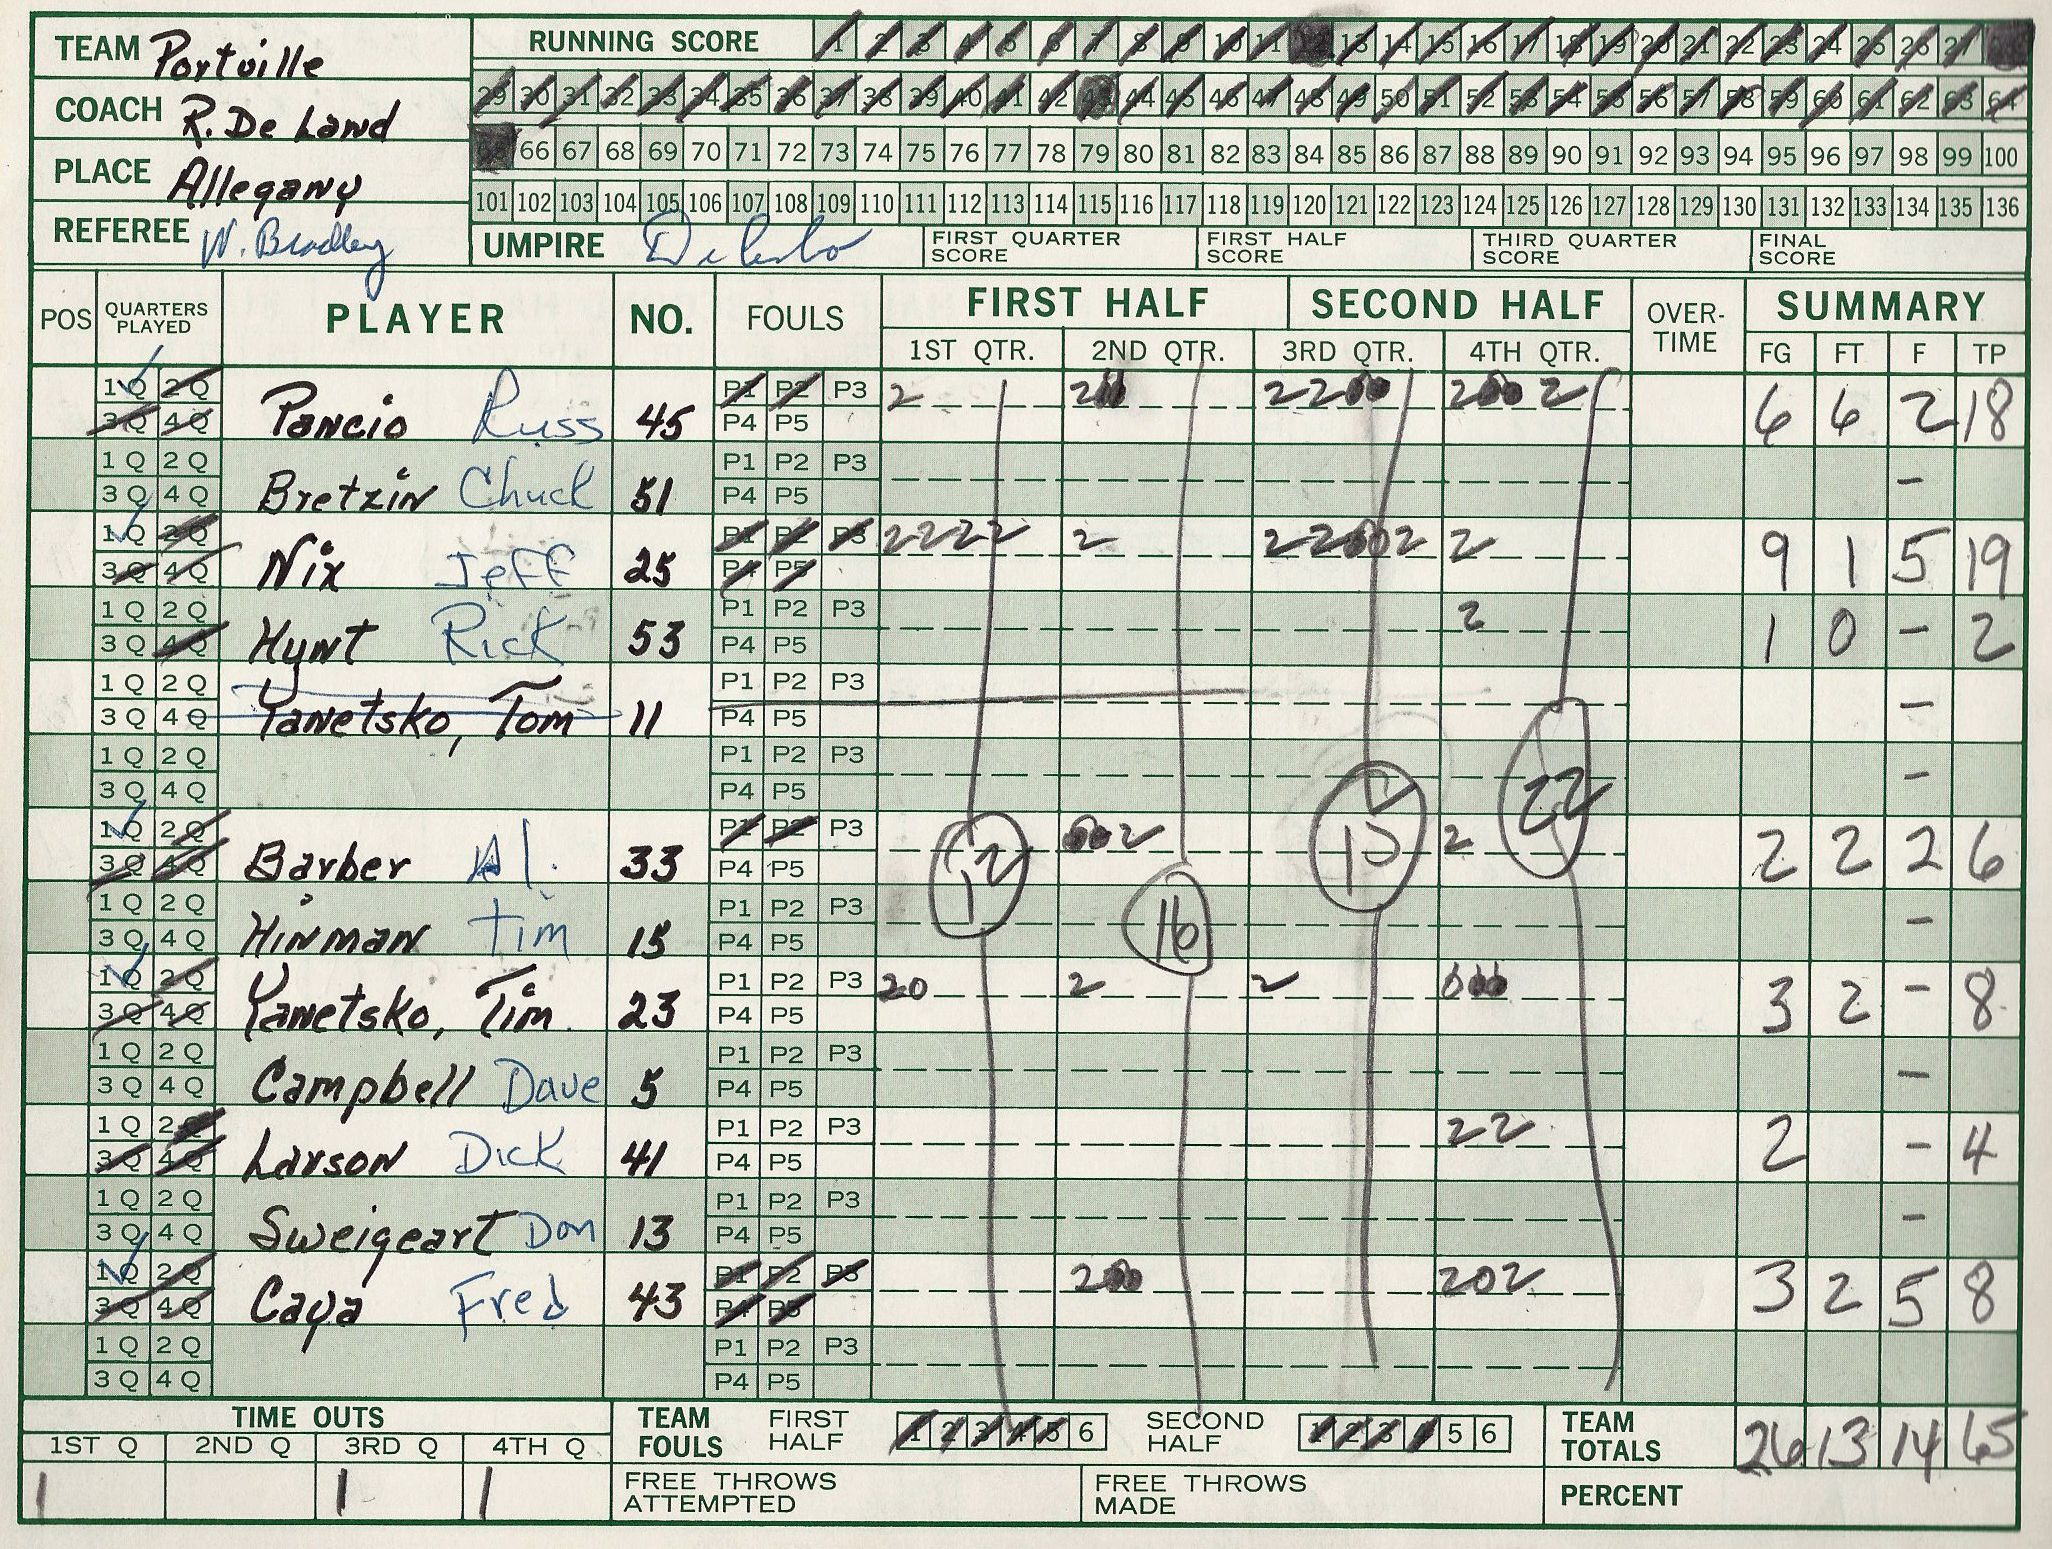 TEAM Portville
RUNNING SCORE 1 2 3 4 5 6 7 8 9 10 11 12 13 14 15 16 17 18 19 20 21 22 23 24 25 26 27 28
29 30 31 32 33 34 35 36 37 38 39 40 41 42 43 44 45 46 47 48 49 50 51 52 53 54 55 56 57 58 59 60 61 62 63 64
COACH R. De Land
65 66 67 68 69 70 71 72 73 74 75 76 77 78 79 80 81 82 83 84 85 86 87 88 89 90 91 92 93 94 95 96 97 98 99 100
PLACE Allegany
101 102 103 104 105 106 107 108 109 110 111 112 113 114 115 116 117 118 119 120 121 122 123 124 125 126 127 128 129 130 131 132 133 134 135 136
REFEREE W. Bradley
UMPIRE
FIRST QUARTER SCORE
FIRST HALF SCORE
THIRD QUARTER SCORE
FINAL SCORE
POS QUARTERS PLAYED PLAYER NO. FOULS FIRST HALF SECOND HALF OVER-TIME SUMMARY
1ST QTR. 2ND QTR. 3RD QTR. 4TH QTR. FG FT F TP
1Q 2Q 3Q 4Q Pancio Russ 45 P1 P2 P3 P4 P5 2 2 2 2 2 2 6 6 2 18
1Q 2Q 3Q 4Q Bretzin Chuck 51 P1 P2 P3 P4 P5 -
1Q 2Q 3Q 4Q Nix Jeff 25 P1 P2 P3 P4 P5 2 2 2 2 2 2 2 2 2 9 1 5 19
1Q 2Q 3Q 4Q Hynt Rick 53 P1 P2 P3 P4 P5 2 1 0 - 2
1Q 2Q 3Q 4Q Yanetsko, Tom 11 P1 P2 P3 P4 P5 -
1Q 2Q 3Q 4Q P1 P2 P3 P4 P5 22 -
1Q 2Q 3Q 4Q Barber Al. 33 P1 P2 P3 P4 P5 12 2 15 2 2 2 2 6
1Q 2Q 3Q 4Q Hinman Tim 15 P1 P2 P3 P4 P5 16 -
1Q 2Q 3Q 4Q Yanetsko, Tim. 23 P1 P2 P3 P4 P5 2 0 2 2 3 2 - 8
1Q 2Q 3Q 4Q Campbell Dave 5 P1 P2 P3 P4 P5 -
1Q 2Q 3Q 4Q Larson Dick 41 P1 P2 P3 P4 P5 2 2 2 - 4
1Q 2Q 3Q 4Q Sweigeart Don 13 P1 P2 P3 P4 P5 -
1Q 2Q 3Q 4Q Caya Fred 43 P1 P2 P3 P4 P5 2 2 0 2 3 2 5 8
1Q 2Q 3Q 4Q P1 P2 P3 P4 P5
TIME OUTS
1ST Q 2ND Q 3RD Q 4TH Q
1 1 1
TEAM FOULS FIRST HALF 1 2 3 4 5 6 SECOND HALF 1 2 3 4 5 6
TEAM TOTALS 26 13 14 65
FREE THROWS ATTEMPTED
FREE THROWS MADE
PERCENT